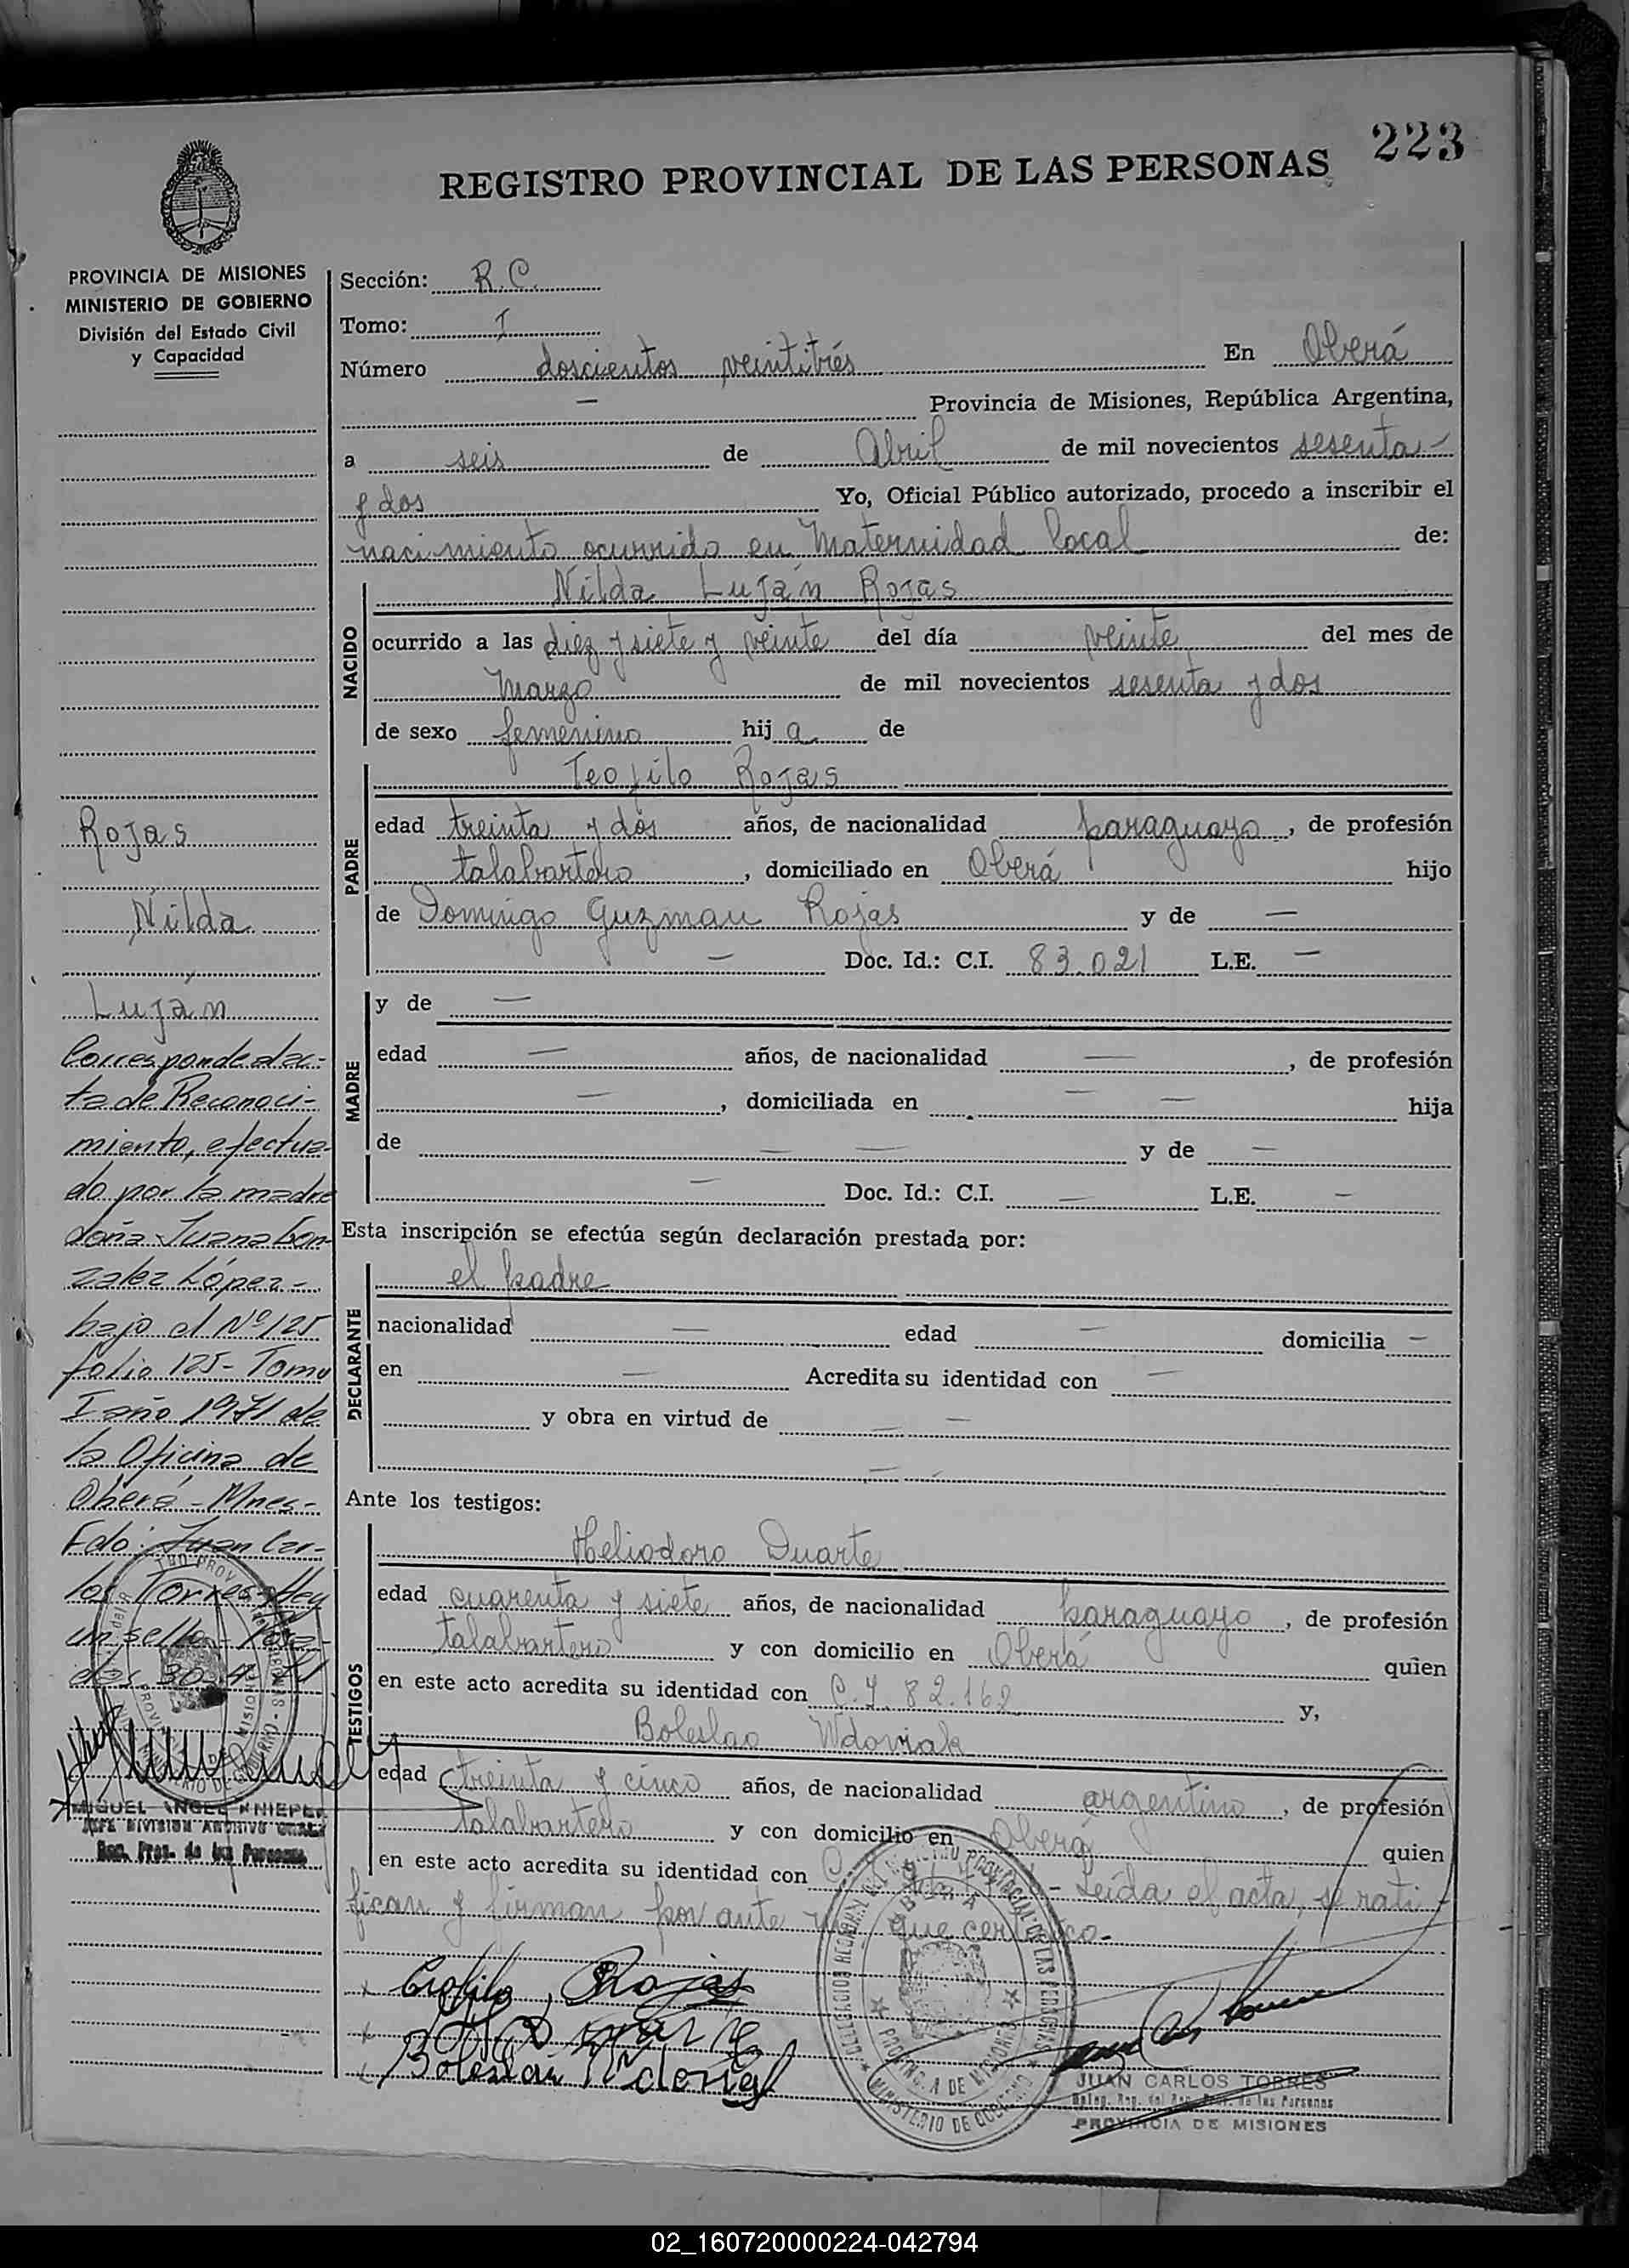 223
REGISTRO PROVINCIAL DE LAS PERSONAS
PROVINCIA DE MISIONES
MINISTERIO DE GOBIERNO
División del Estado Civil
y Capacidad
Rojas
Nilda
Luján
Corresponde al ac-
ta de Reconoci-
miento, efectua-
do por la madre
doña Juana Gon-
zalez López-
bajo el Nº 125
folio 125- Tomo
I año 1971 de
la Oficina de
Oberá - Mnes-
Fdo: Juan Car-
los Torres- Hay
un sello- Posa-
das 30-4-71
MIGUEL ANGEL KNIEPER
JEFE DIVISION ARCHIVO GRAL.
Reg. Prov. de las Personas
Sección: R.C.
Tomo: I
Número doscientos veintitrés En Oberá
— Provincia de Misiones, República Argentina,
a seis de Abril de mil novecientos sesenta-
y dos Yo, Oficial Público autorizado, procedo a inscribir el
nacimiento ocurrido en Maternidad local de:
NACIDO
Nilda Luján Rojas
ocurrido a las diez y siete y veinte del día veinte del mes de
Marzo de mil novecientos sesenta y dos
de sexo femenino hij a de
PADRE
Teofilo Rojas
edad treinta y dos años, de nacionalidad paraguayo, de profesión
talabartero, domiciliado en Oberá hijo
de Domingo Guzman Rojas y de —
— Doc. Id.: C.I. 83.021 L.E. —
MADRE
y de —
edad — años, de nacionalidad —, de profesión
—, domiciliada en — — hija
de — — y de —
— Doc. Id.: C.I. — L.E. —
Esta inscripción se efectúa según declaración prestada por:
DECLARANTE
el padre
nacionalidad — edad — domicilia —
en — Acredita su identidad con —
y obra en virtud de — —
— —
Ante los testigos:
TESTIGOS
Heliodoro Duarte
edad cuarenta y siete años, de nacionalidad paraguayo, de profesión
talabartero y con domicilio en Oberá quien
en este acto acredita su identidad con C.I. 82.162 y,
Boleslao Wdoviak
edad treinta y cinco años, de nacionalidad argentino, de profesión
talabartero y con domicilio en Oberá quien
en este acto acredita su identidad con - Leída el acta, se rati-
fican y firman por ante que certifico.
Teofilo Rojas
JUAN CARLOS TORRES
Deleg. Reg. del Reg. Prov. de las Personas
PROVINCIA DE MISIONES
REGISTRO PROVINCIAL DE LAS PERSONAS
OBERA
PROVINCIA DE MISIONES
MINISTERIO DE GOBIERNO
02_160720000224-042794